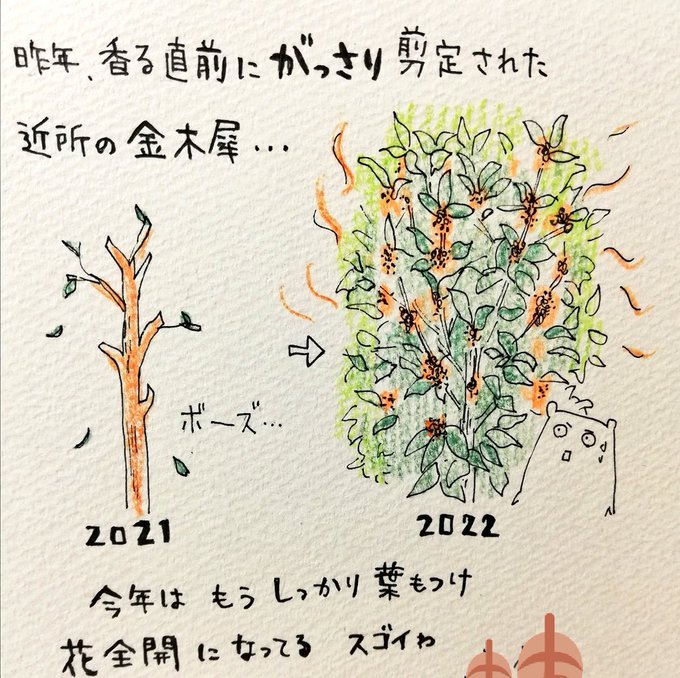 昨年、香る直前にがっさり剪定された
近所の金木犀…
ボーズ…
2021
2022
今年は もう しっかり葉もつけ
花全開になってる スゴイわ